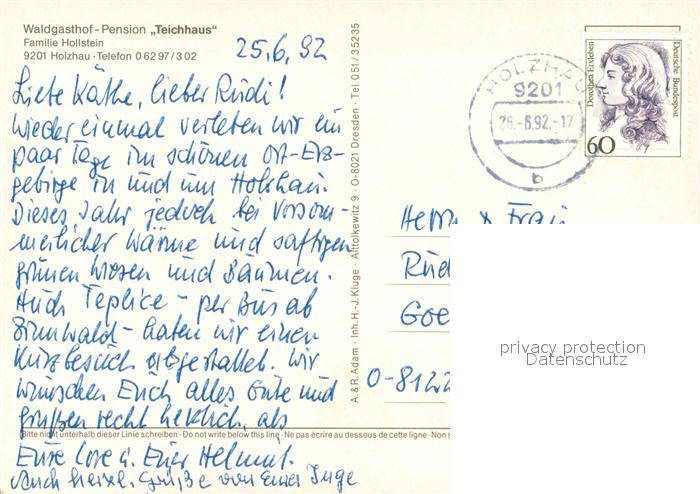 Waldgasthof - Pension „Teichhaus"
Familie Hollstein
9201 Holzhau · Telefon 0 62 97 / 3 02
25.6.92
Liebe Käthe, lieber Rudi!
Wieder einmal verleben wir ein
paar Tage im schönen Ost-Erz-
gebirge in und um Holzhau.
Dieses Jahr jedoch bei vorsom-
merlicher Wärme und saftigen
grünen Wiesen und Bäumen.
Auch Teplice - per Bus ab
Zinnwald - haben wir einen
Kurzbesuch abgestattet. Wir
wünschen Euch alles Gute und
grüßen recht herzlich, als
Bitte nicht unterhalb dieser Linie schreiben · Do not write below this line · Ne pas écrire au dessous de cette ligne · Non
Eure Lore u. Euer Helmut.
Auch herzl. Grüße von Eurer Inge
A. & R. Adam · Inh. H.-J. Kluge · Alttolkewitz 9 · O-8021 Dresden · Tel. 0 51 / 3 52 35
HOLZHAU
9201
26.-6.92.-17
b
Dorothea Erxleben
Deutsche Bundespost
60
Herrn & Frau
Rud
Goe
O-8122
privacy protection
Datenschutz